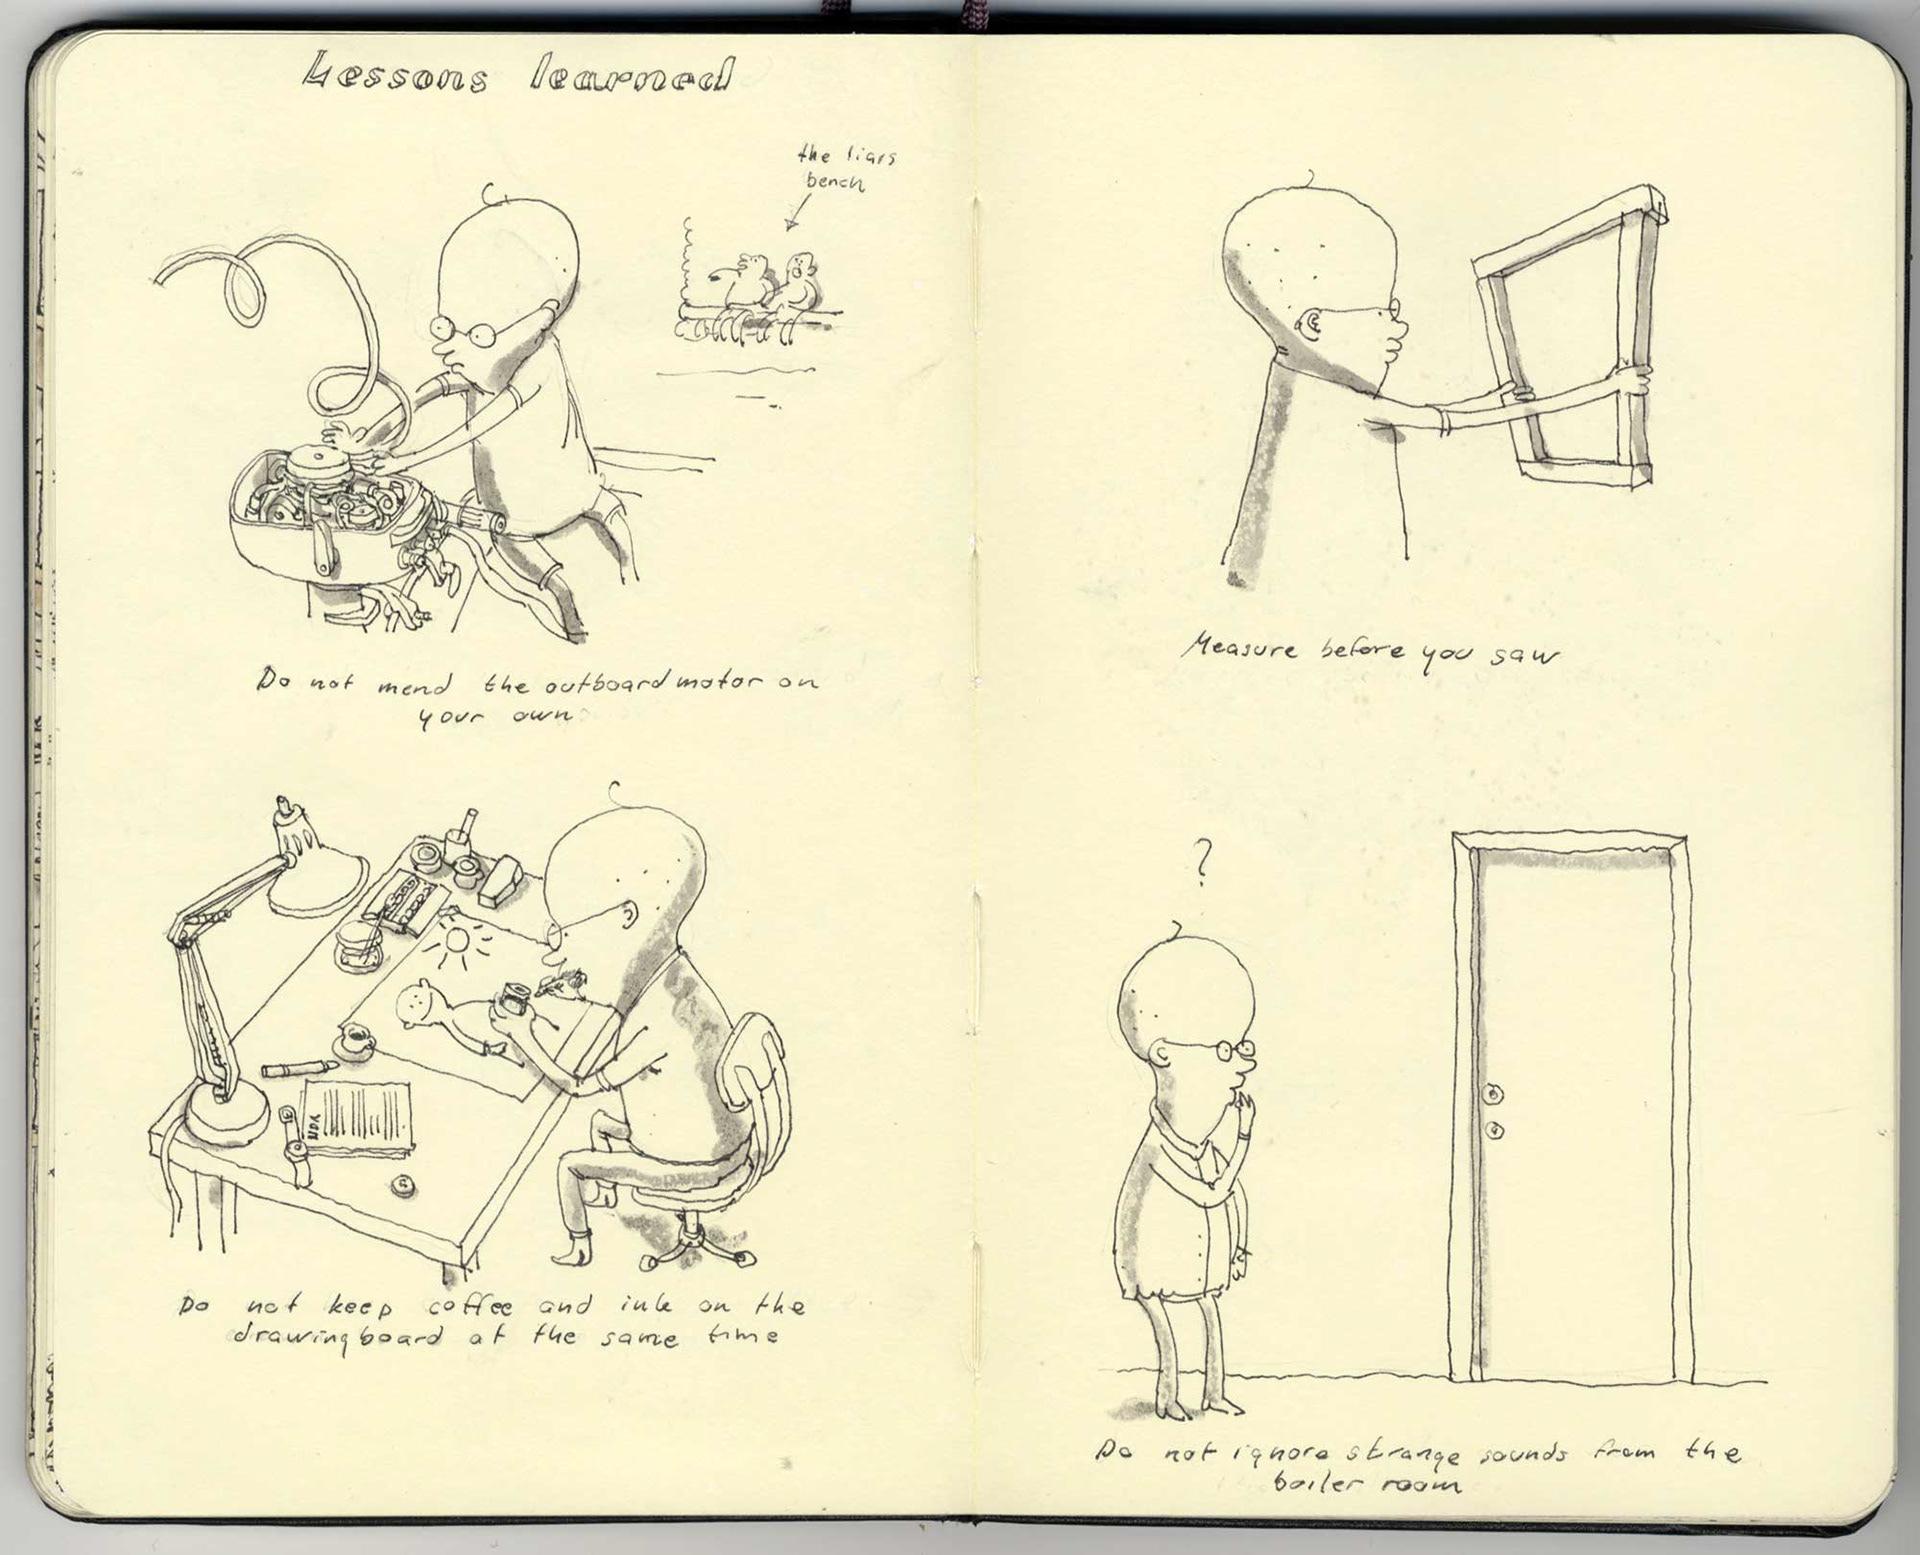 Lessons learned
the liars
bench
Do not mend the outboardmotor on
your own
Measure before you saw
Do not keep coffee and ink on the
drawingboard at the same time
?
Do not ignore strange sounds from the
boiler room